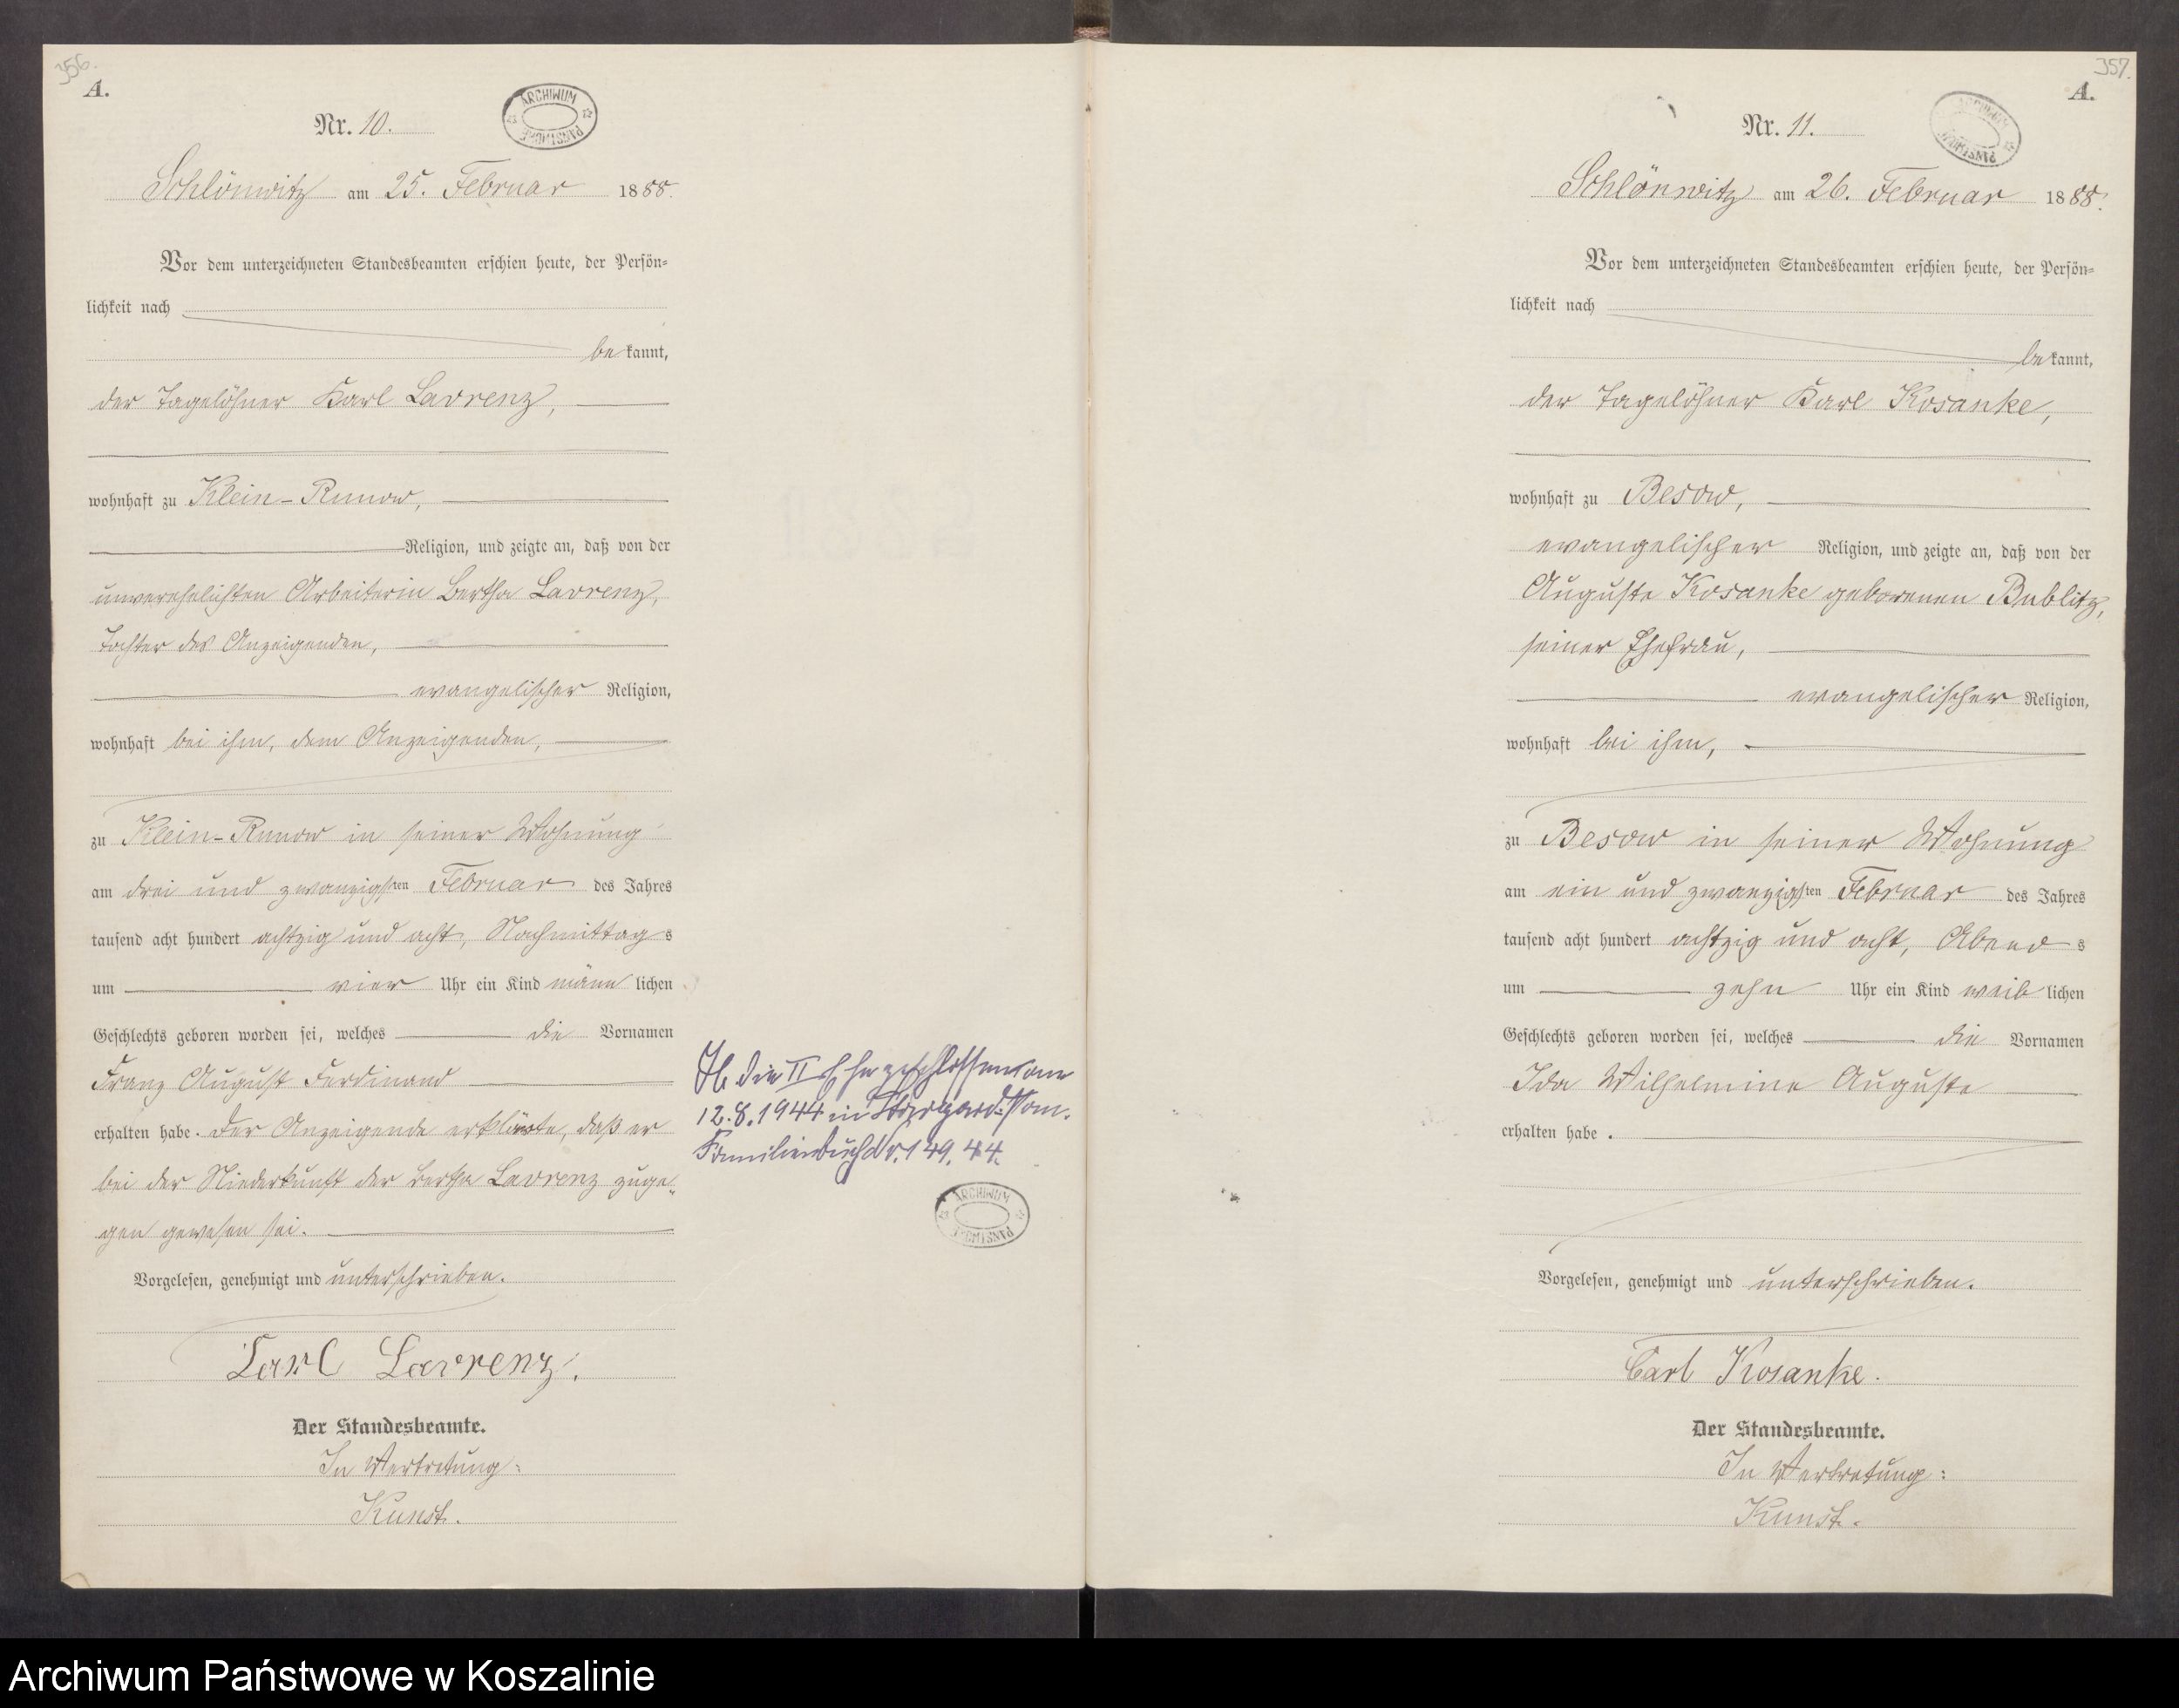 356.
A.
ARCHIWUM PAŃSTWOWE
Nr. 10.
Schlönwitz am 25. Februar 1888.
Vor dem unterzeichneten Standesbeamten erschien heute, der Persön-
lichkeit nach
bekannt,
der Tagelöhner Karl Lavrenz,
wohnhaft zu Klein-Runow,
Religion, und zeigte an, daß von der
unverehelichten Arbeiterin Bertha Lavrenz,
Tochter des Anzeigenden,
evangelischer Religion,
wohnhaft bei ihm, dem Anzeigenden,
zu Klein-Runow in seiner Wohnung
am drei und zwanzigsten Februar des Jahres
tausend acht hundert achtzig und acht, Nachmittags
um vier Uhr ein Kind männlichen
Geschlechts geboren worden sei, welches die Vornamen
Franz August Ferdinand
erhalten habe. Der Anzeigende erklärte, daß er
bei der Niederkunft der Bertha Lavrenz zuge-
gen gewesen sei.
Vorgelesen, genehmigt und unterschrieben.
Carl Lavrenz.
Der Standesbeamte.
In Vertretung:
Kunst.
die II Ehe geschlossen am
12.8.1944 in Stargard/Pom.
Familienbuch Nr. 149.44.
ARCHIWUM PAŃSTWOWE
357.
A.
ARCHIWUM PAŃSTWOWE
Nr. 11.
Schlönwitz am 26. Februar 1888.
Vor dem unterzeichneten Standesbeamten erschien heute, der Persön-
lichkeit nach
bekannt,
der Tagelöhner Karl Kosanke,
wohnhaft zu Besow,
evangelischer Religion, und zeigte an, daß von der
Auguste Kosanke geborenen Bublitz,
seiner Ehefrau,
evangelischer Religion,
wohnhaft bei ihm,
zu Besow in seiner Wohnung
am ein und zwanzigsten Februar des Jahres
tausend acht hundert achtzig und acht, Abends
um zehn Uhr ein Kind weiblichen
Geschlechts geboren worden sei, welches die Vornamen
Ida Wilhelmine Auguste
erhalten habe.
Vorgelesen, genehmigt und unterschrieben.
Carl Kosanke.
Der Standesbeamte.
In Vertretung:
Kunst.
Archiwum Państwowe w Koszalinie